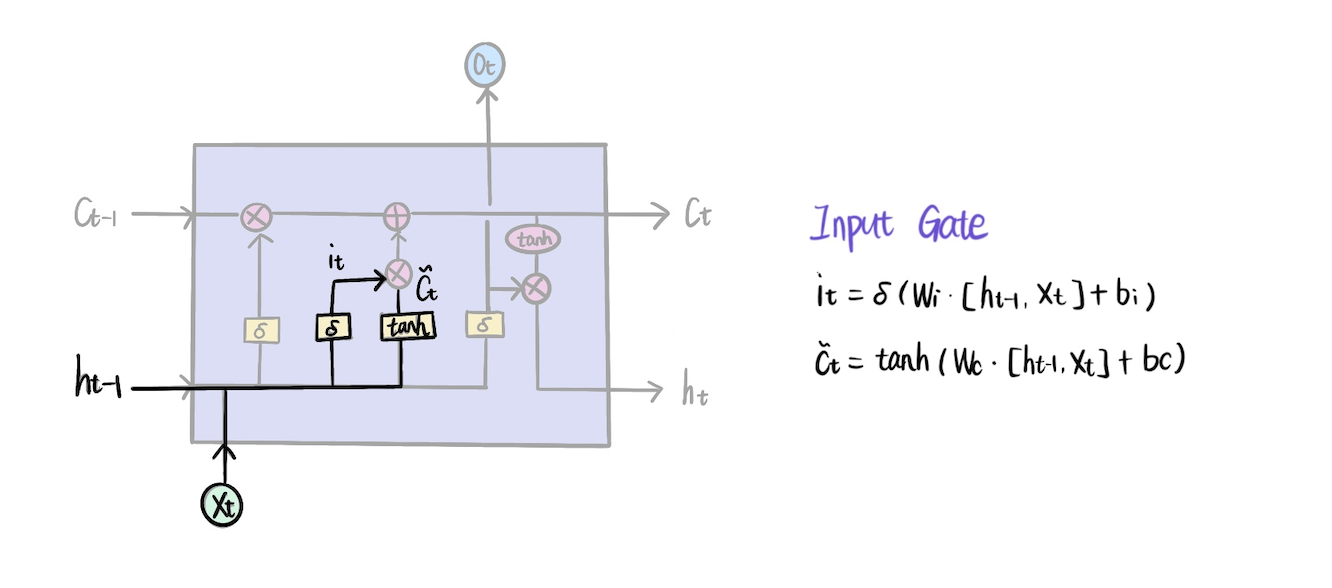 Ot
Ct-1
Ct
tanh
it
Čt
δ
δ
tanh
δ
ht-1
ht
Xt
Input Gate
it = δ(Wi · [ht-1, Xt] + bi)
Čt = tanh(Wc · [ht-1, Xt] + bc)